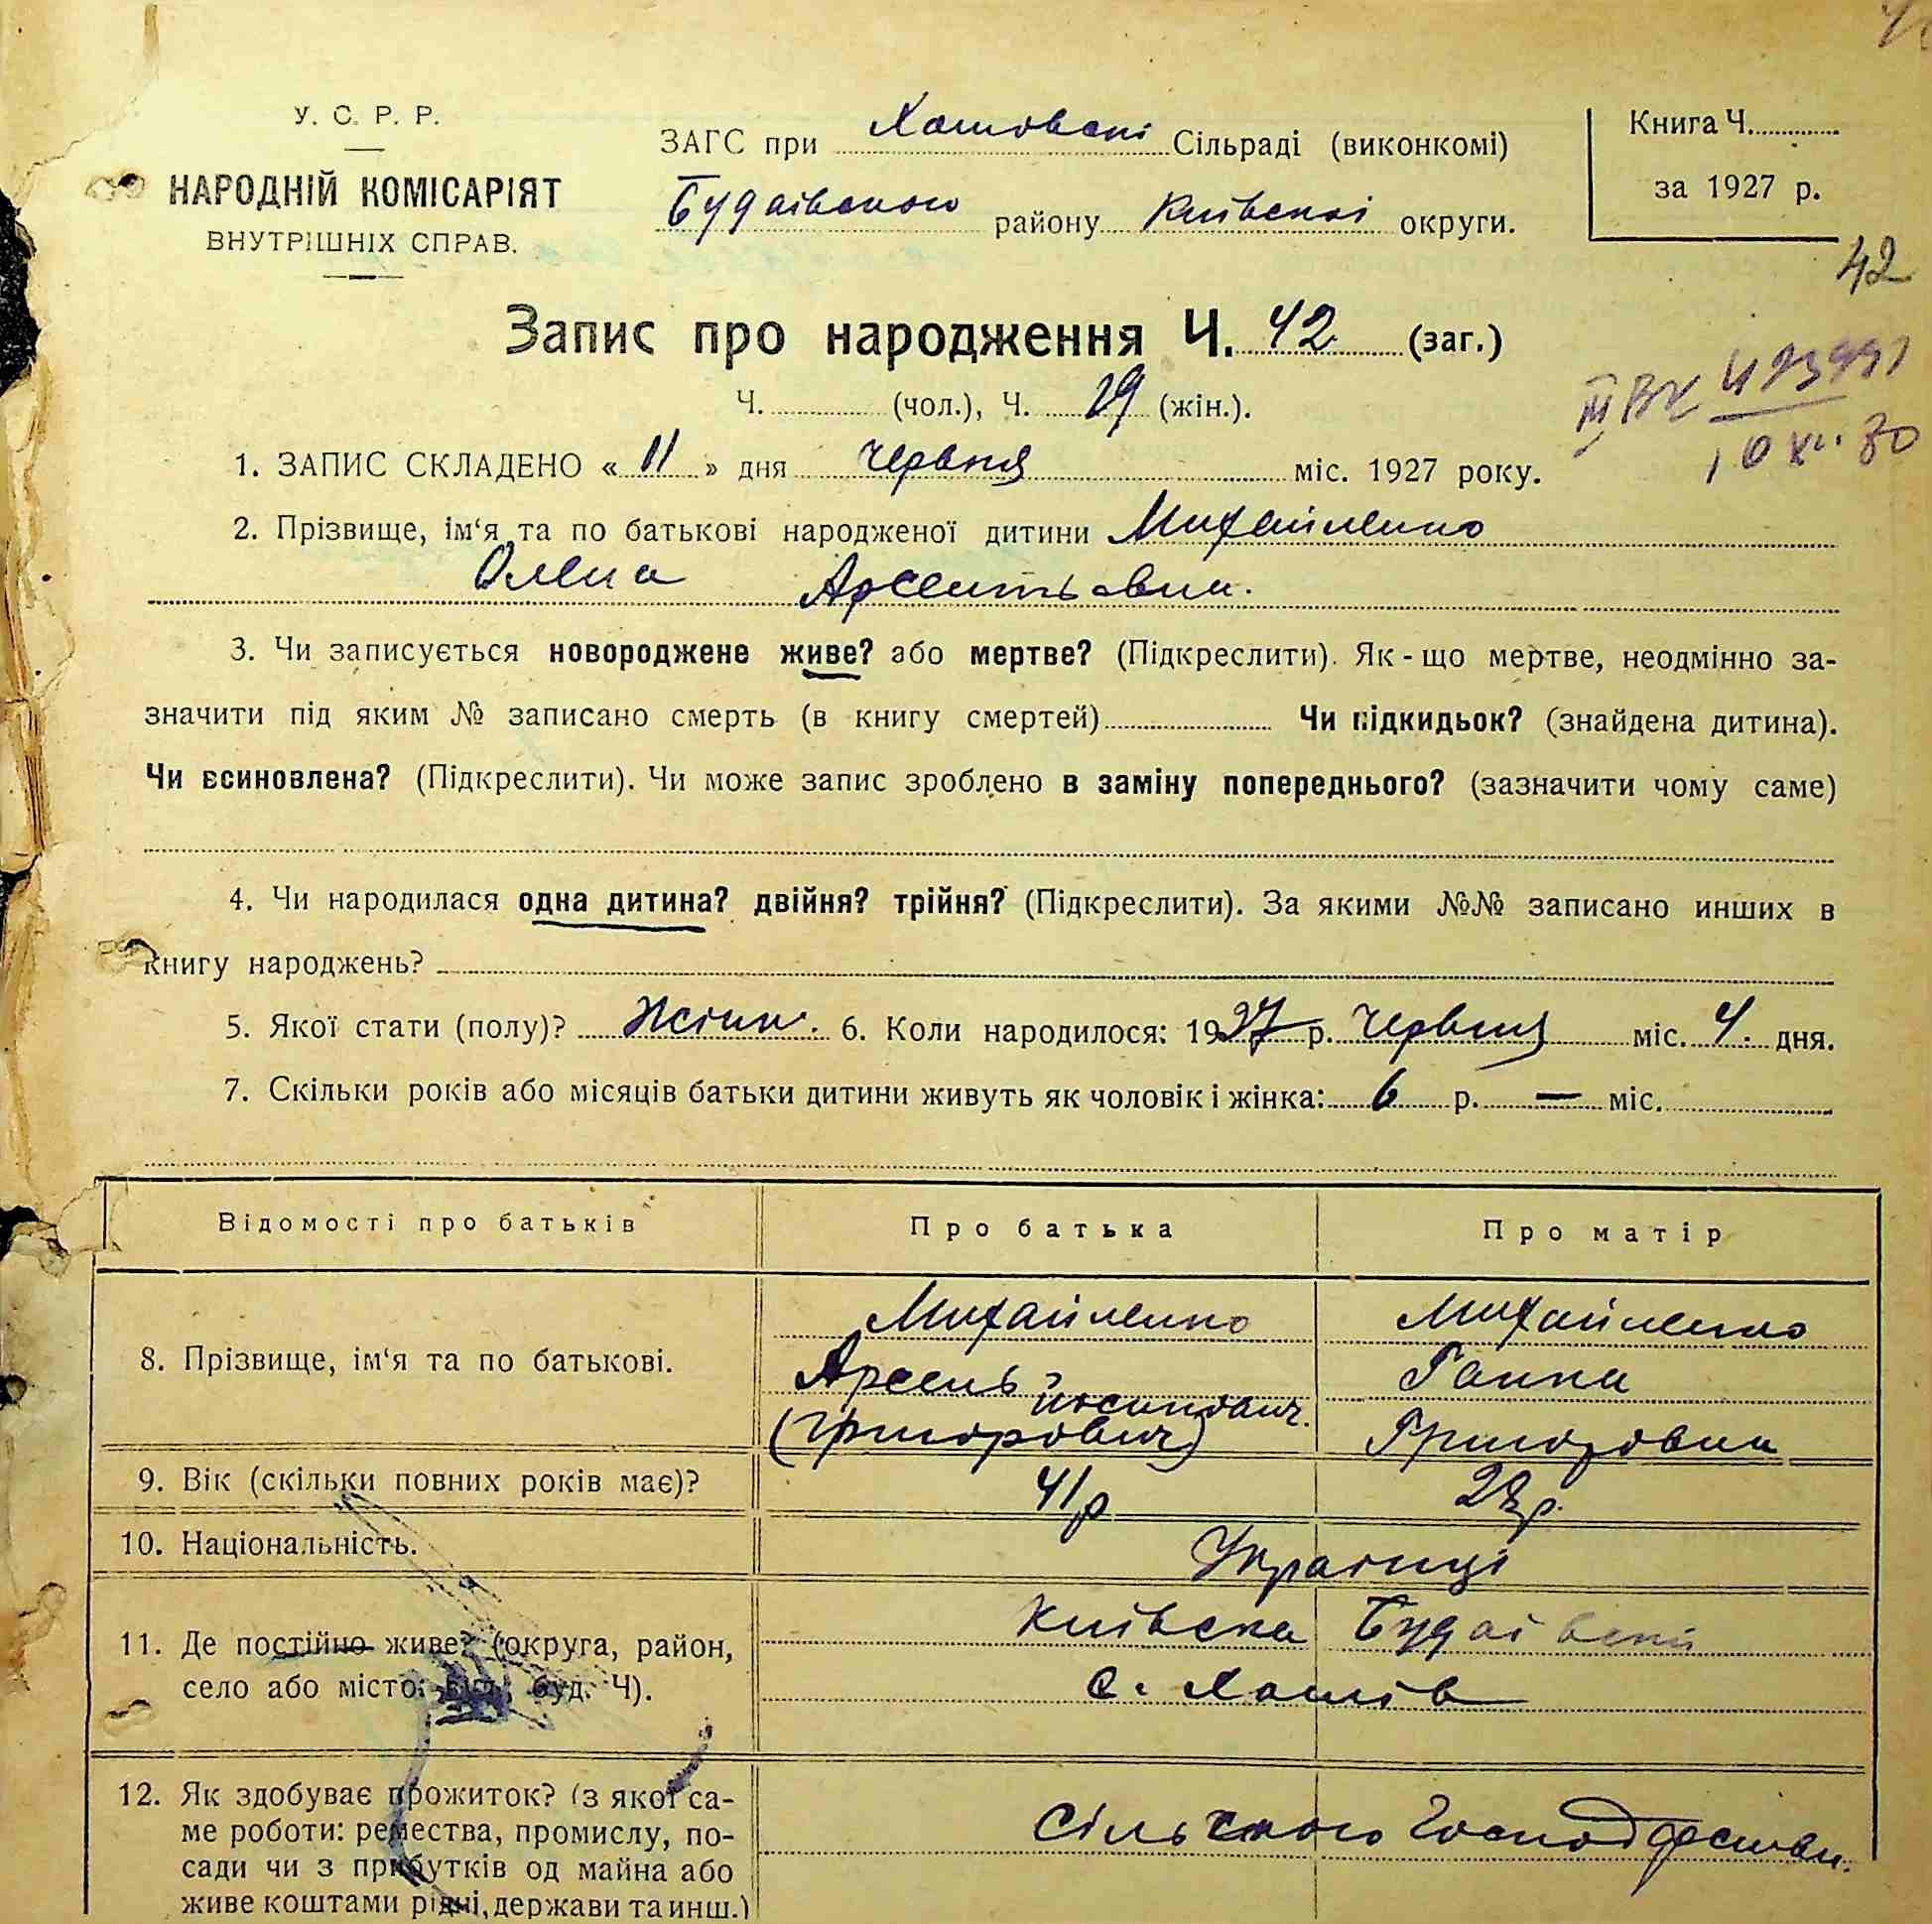 У. С. Р. Р.
НАРОДНІЙ КОМІСАРІЯТ
ВНУТРІШНІХ СПРАВ.
ЗАГС при Хотівські Сільраді (виконкомі)
Будаівського району Київської округи.
Книга Ч.
за 1927 р.
42
Запис про народження Ч. 42 (заг.)
Ч. (чол.), Ч. 19 (жін.).
1. ЗАПИС СКЛАДЕНО « 11 » дня червня міс. 1927 року.
2. Прізвище, ім'я та по батькові народженої дитини Михайленко
Олена Арсентьевна.
3. Чи записується новороджене живе? або мертве? (Підкреслити). Як-що мертве, неодмінно за-
значити під яким № записано смерть (в книгу смертей) Чи підкидьок? (знайдена дитина).
Чи всиновлена? (Підкреслити). Чи може запис зроблено в заміну попереднього? (зазначити чому саме)
4. Чи народилася одна дитина? двійня? трійня? (Підкреслити). За якими №№ записано инших в
книгу народжень?
5. Якої стати (полу)? Жіноч. 6. Коли народилося: 1927 р. червня міс. 4. дня.
7. Скільки років або місяців батьки дитини живуть як чоловік і жінка: 6 р. — міс.
Відомості про батьків Про батька Про матір
8. Прізвище, ім'я та по батькові.
Михайленко Михайленко
Арсень Йосипович. Ганна
(Григорович) Григоровна
9. Вік (скільки повних років має)? 41 р
10. Національність. Українці
11. Де постійно живе? (округа, район,
село або місто: буд. Ч).
Київська Будаівський
с. Хотів
12. Як здобуває прожиток? (з якої са-
ме роботи: ремества, промислу, по-
сади чи з прибутків од майна або
живе коштами рідні, держави та инш.)
сільського господарства.